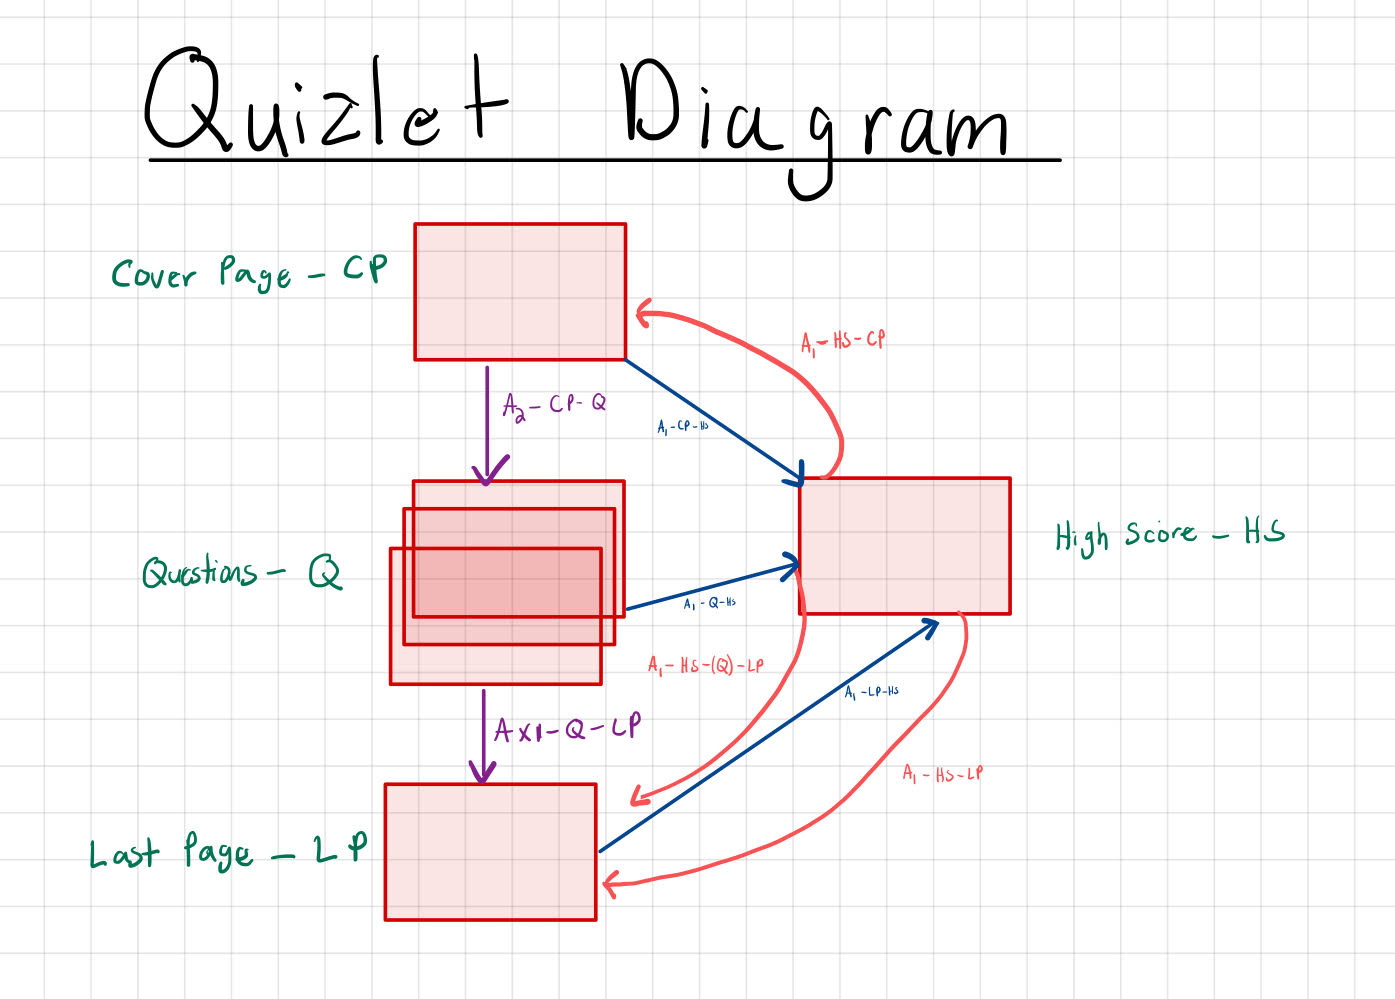 Quizlet Diagram
Cover Page - CP
A1 - HS - CP
A2 - CP - Q
A1 - CP - HS
High Score - HS
Questions - Q
A1 - Q - HS
A1 - HS - (Q) - LP
A1 - LP - HS
AX1 - Q - LP
A1 - HS - LP
Last Page - LP